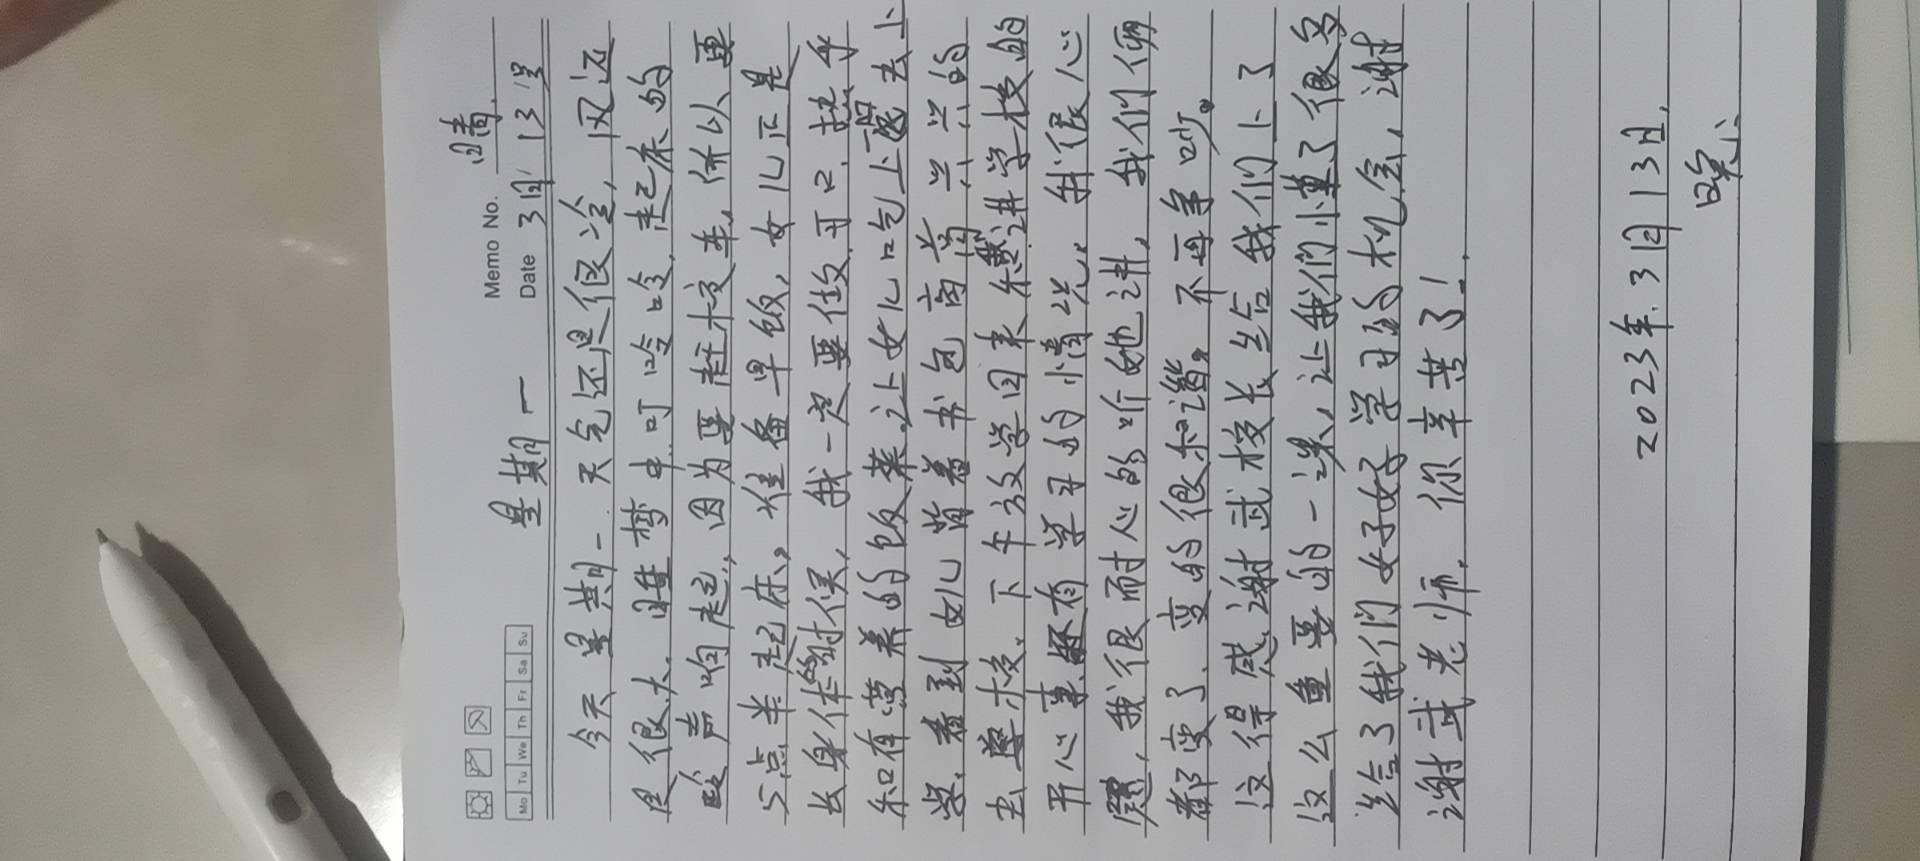 Memo No.
晴
Mo Tu We Th Fr Sa Su
星期一
Date 3月13号
今天星期一. 天气还是很冷, 风还
是很大. 睡梦中. 叮呤呤. 起床的
声响起, 因为要赶校车, 所以, 要
5点半起床, 准备早饭, 女儿正是
长身体的时候, 我一定要做可口. 热乎
和有营养的饭菜. 让女儿吃上暖去上
学. 看到女儿背着书包高高兴兴的
去学校. 下午放学回来 进学校的
开心事还有学习的情况. 我很心
我很耐心的听她讲, 我们俩
都变了. 变的很和谐. 不再争吵.
这得感谢武校长给我们上了
这么重要的一课, 让我们懂了很多
给了我们女子好学习的机会, 谢
谢武老师. 你辛苦了!
2023年. 3月13日.